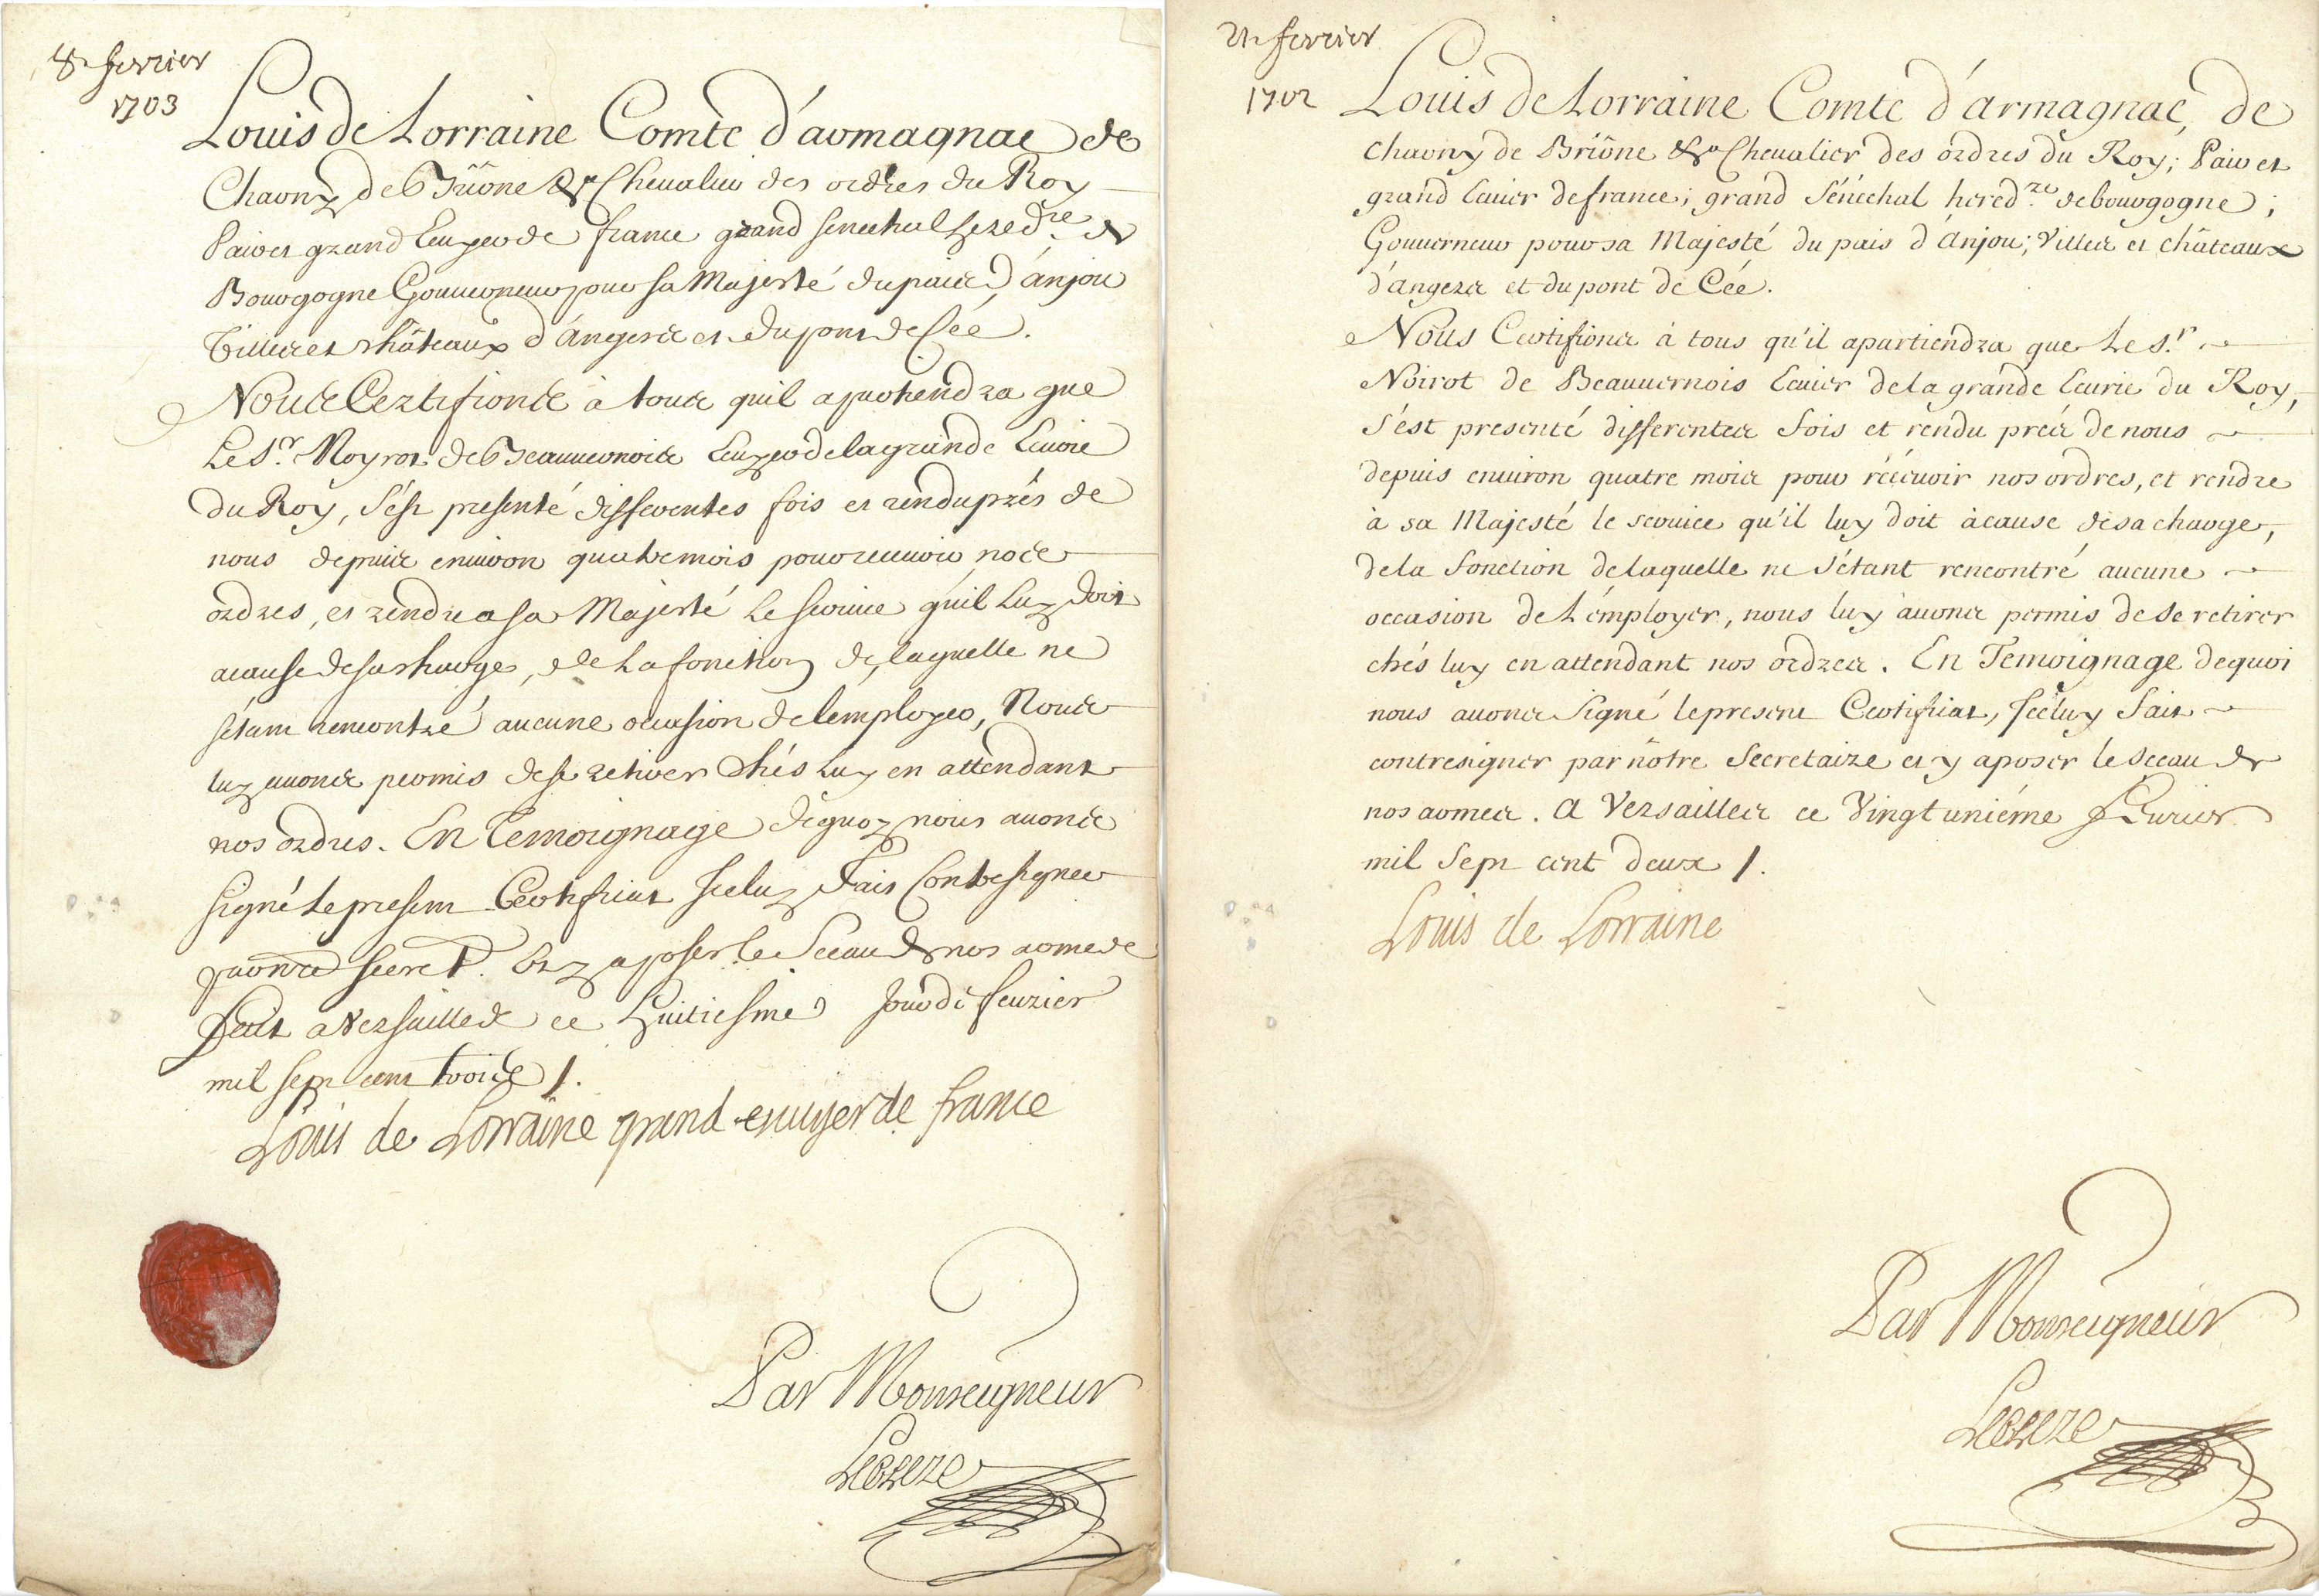 8e fevrier
1703
Louis de Lorraine Comte d'armagnac de
Charny de Briône &a Chevalier des ordres du Roy
Pair et grand Ecuyer de france grand senechal hered.re de
Bourgogne Gouverneur pour sa Majesté du païs d'anjou
Villes et châteaux d'Angers et du pont de Cée.
Nous Certifions à tous quil apartiendra que
Le S.r Noyrot de Beauvernois Ecuyer de la grande Ecurie
du Roy, s'est presenté differentes fois et rendu prés de
nous depuis environ quatre mois pour recevoir nos
ordres, et rendre a sa Majesté le service qu'il Luy doit
acause de sa charge, de La fonction de laquelle ne
s'etant rencontré aucune occasion de lemployer, Nous
luy avons permis de se retirer chés Luy en attendant
nos ordres. En Temoignage dequoy nous avons
signé le present Certificat Icelluy Fait Contresigner
par n̄re secret. et y aposer le Sceau de nos armes
fait a Versailles ce huitiesme Jour de fevrier
mil sept cent trois /.
Louis de Lorraine grand escuyer de france
Par Monseigneur
21e fevrier
1702
Louis de Lorraine Comte d'armagnac, de
Charny de Briône &a Chevalier des ordres du Roy; Pair et
grand Ecuier de france; grand Sénéchal hered.re de bourgogne;
Gouverneur pour sa Majesté du païs d'Anjou; Villes et châteaux
d'angers et du pont de Cée.
Nous Certifions à tous qu'il apartiendra que Le S.r
Noirot de Beauvernois Ecuier de la grande Ecurie du Roy,
s'est presenté differentes fois et rendu prés de nous
depuis environ quatre mois pour récevoir nos ordres, et rendre
à sa Majesté le service qu'il luy doit àcause de sa charge,
de la fonction de laquelle ne s'étant rencontré aucune
occasion de L'émployer, nous luy avons permis de se retirer
chés luy en attendant nos ordres. En Temoignage dequoi
nous avons signé le present Certificat, Iceluy fait
contresigner par nôtre Secretaire et y aposer le sceau de
nos armes. A Versailles ce Vingt uniéme Fevrier
mil Sept cent deux /.
Louis de Lorraine
Par Monseigneur